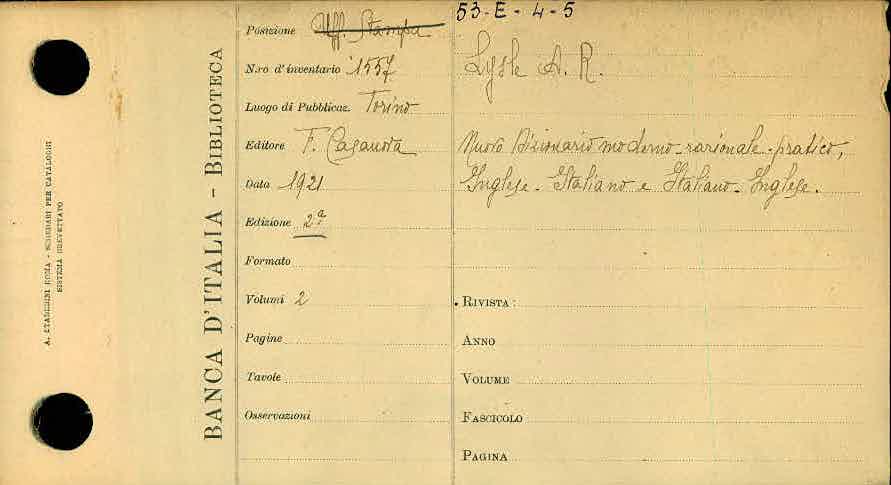 53-E-4-5
Posizione Uff. Stampa
N.ro d'inventario 1557
Lysle A. R.
Luogo di Pubblicaz. Torino
Editore F. Casanova
Nuovo Dizionario moderno-razionale-pratico,
Data 1921
Inglese-Italiano e Italiano-Inglese.
Edizione 2ª
Formato
Volumi 2
RIVISTA:
Pagine
ANNO
Tavole
VOLUME
Osservazioni
FASCICOLO
PAGINA
BANCA D'ITALIA - BIBLIOTECA
A. STADERINI ROMA - SCHEDARI PER CATALOGHI
SISTEMA BREVETTATO